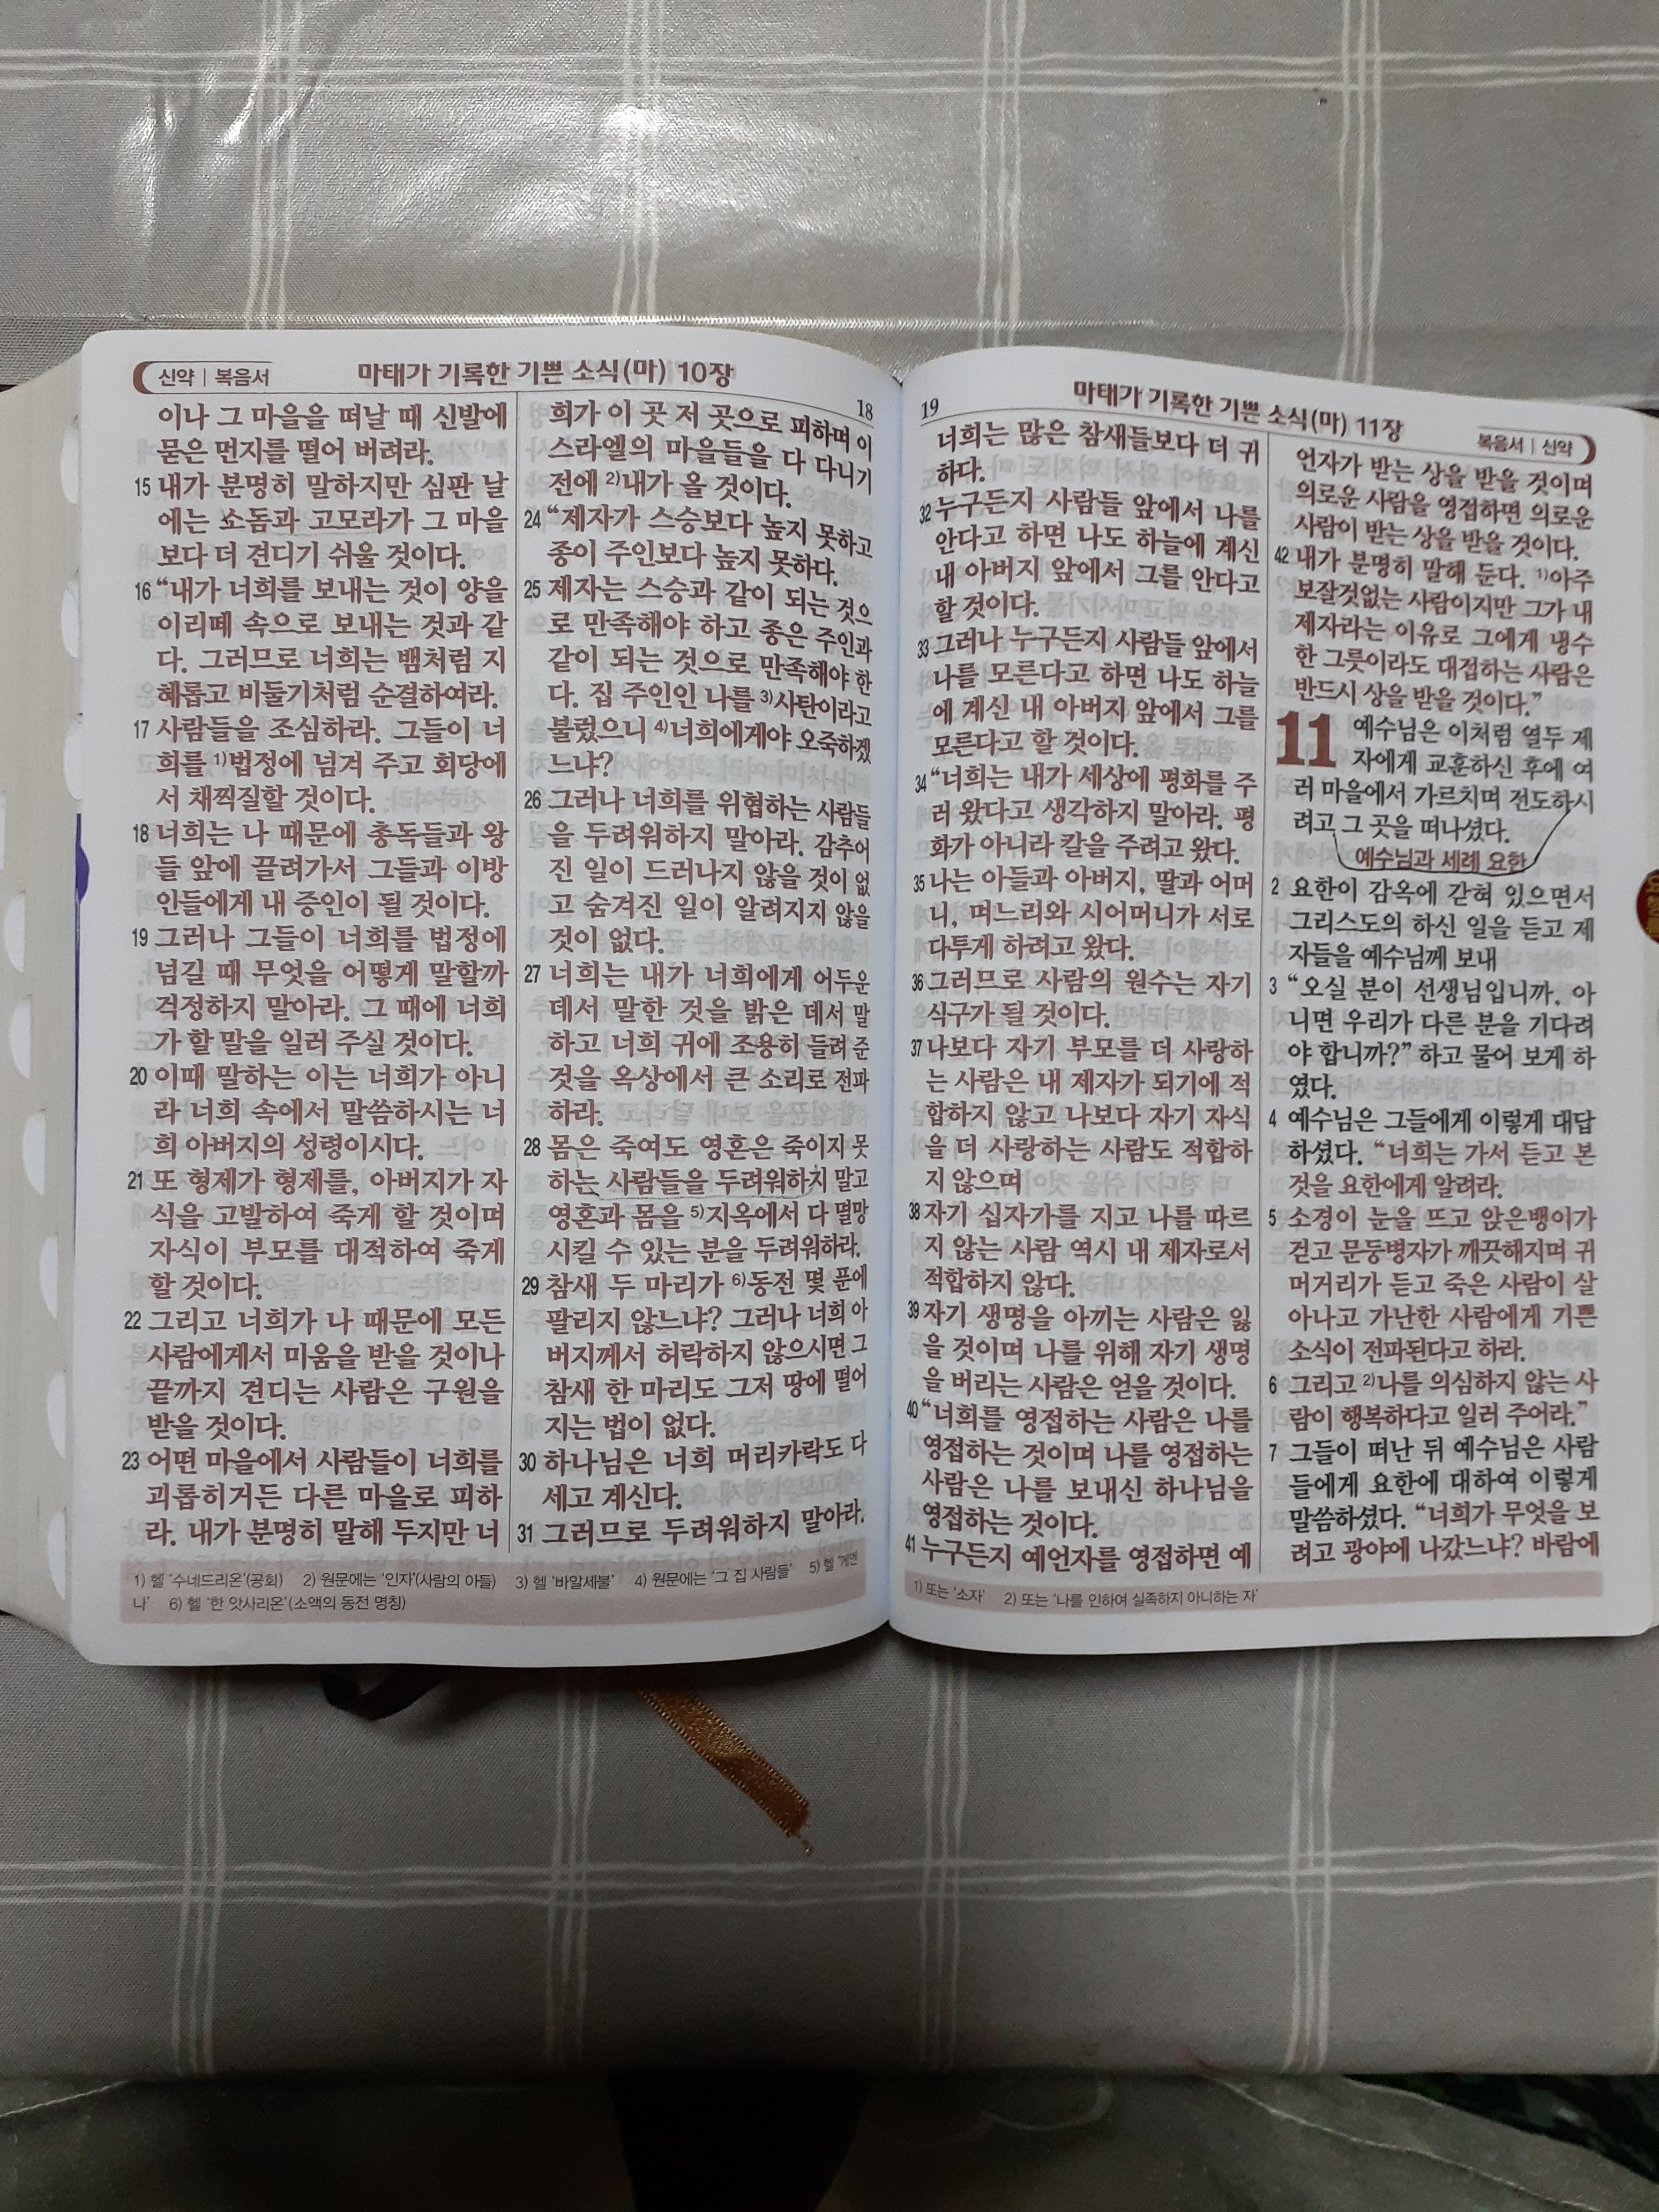 신약 | 복음서
마태가 기록한 기쁜 소식(마) 10장
18
이나 그 마을을 떠날 때 신발에
묻은 먼지를 떨어 버려라.
15 내가 분명히 말하지만 심판 날
에는 소돔과 고모라가 그 마을
보다 더 견디기 쉬울 것이다.
16 “내가 너희를 보내는 것이 양을
이리떼 속으로 보내는 것과 같
다. 그러므로 너희는 뱀처럼 지
혜롭고 비둘기처럼 순결하여라.
17 사람들을 조심하라. 그들이 너
희를 1)법정에 넘겨 주고 회당에
서 채찍질할 것이다.
18 너희는 나 때문에 총독들과 왕
들 앞에 끌려가서 그들과 이방
인들에게 내 증인이 될 것이다.
19 그러나 그들이 너희를 법정에
넘길 때 무엇을 어떻게 말할까
걱정하지 말아라. 그 때에 너희
가 할 말을 일러 주실 것이다.
20 이때 말하는 이는 너희가 아니
라 너희 속에서 말씀하시는 너
희 아버지의 성령이시다.
21 또 형제가 형제를, 아버지가 자
식을 고발하여 죽게 할 것이며
자식이 부모를 대적하여 죽게
할 것이다.
22 그리고 너희가 나 때문에 모든
사람에게서 미움을 받을 것이나
끝까지 견디는 사람은 구원을
받을 것이다.
23 어떤 마을에서 사람들이 너희를
괴롭히거든 다른 마을로 피하
라. 내가 분명히 말해 두지만 너
희가 이 곳 저 곳으로 피하며 이
스라엘의 마을들을 다 다니기
전에 2)내가 올 것이다.
24 “제자가 스승보다 높지 못하고
종이 주인보다 높지 못하다.
25 제자는 스승과 같이 되는 것으
로 만족해야 하고 종은 주인과
같이 되는 것으로 만족해야 한
다. 집 주인인 나를 3)사탄이라고
불렀으니 4)너희에게야 오죽하겠
느냐?
26 그러나 너희를 위협하는 사람들
을 두려워하지 말아라. 감추어
진 일이 드러나지 않을 것이 없
고 숨겨진 일이 알려지지 않을
것이 없다.
27 너희는 내가 너희에게 어두운
데서 말한 것을 밝은 데서 말
하고 너희 귀에 조용히 들려 준
것을 옥상에서 큰 소리로 전파
하라.
28 몸은 죽여도 영혼은 죽이지 못
하는 사람들을 두려워하지 말고
영혼과 몸을 5)지옥에서 다 멸망
시킬 수 있는 분을 두려워하라.
29 참새 두 마리가 6)동전 몇 푼에
팔리지 않느냐? 그러나 너희 아
버지께서 허락하지 않으시면 그
참새 한 마리도 그저 땅에 떨어
지는 법이 없다.
30 하나님은 너희 머리카락도 다
세고 계신다.
31 그러므로 두려워하지 말아라.
1) 헬 ‘수네드리온’(공회) 2) 원문에는 ‘인자’(사람의 아들) 3) 헬 ‘바알세불’ 4) 원문에는 ‘그 집 사람들’ 5) 헬 ‘게엔
나’ 6) 헬 ‘한 앗사리온’(소액의 동전 명칭)
19
마태가 기록한 기쁜 소식(마) 11장
복음서 | 신약
너희는 많은 참새들보다 더 귀
하다.
32 누구든지 사람들 앞에서 나를
안다고 하면 나도 하늘에 계신
내 아버지 앞에서 그를 안다고
할 것이다.
33 그러나 누구든지 사람들 앞에서
나를 모른다고 하면 나도 하늘
에 계신 내 아버지 앞에서 그를
모른다고 할 것이다.
34 “너희는 내가 세상에 평화를 주
러 왔다고 생각하지 말아라. 평
화가 아니라 칼을 주려고 왔다.
35 나는 아들과 아버지, 딸과 어머
니, 며느리와 시어머니가 서로
다투게 하려고 왔다.
36 그러므로 사람의 원수는 자기
식구가 될 것이다.
37 나보다 자기 부모를 더 사랑하
는 사람은 내 제자가 되기에 적
합하지 않고 나보다 자기 자식
을 더 사랑하는 사람도 적합하
지 않으며
38 자기 십자가를 지고 나를 따르
지 않는 사람 역시 내 제자로서
적합하지 않다.
39 자기 생명을 아끼는 사람은 잃
을 것이며 나를 위해 자기 생명
을 버리는 사람은 얻을 것이다.
40 “너희를 영접하는 사람은 나를
영접하는 것이며 나를 영접하는
사람은 나를 보내신 하나님을
영접하는 것이다.
41 누구든지 예언자를 영접하면 예
언자가 받는 상을 받을 것이며
의로운 사람을 영접하면 의로운
사람이 받는 상을 받을 것이다.
42 내가 분명히 말해 둔다. 1)아주
보잘것없는 사람이지만 그가 내
제자라는 이유로 그에게 냉수
한 그릇이라도 대접하는 사람은
반드시 상을 받을 것이다.”
11 예수님은 이처럼 열두 제
자에게 교훈하신 후에 여
러 마을에서 가르치며 전도하시
려고 그 곳을 떠나셨다.
예수님과 세례 요한
2 요한이 감옥에 갇혀 있으면서
그리스도의 하신 일을 듣고 제
자들을 예수님께 보내
3 “오실 분이 선생님입니까, 아
니면 우리가 다른 분을 기다려
야 합니까?” 하고 물어 보게 하
였다.
4 예수님은 그들에게 이렇게 대답
하셨다. “너희는 가서 듣고 본
것을 요한에게 알려라.
5 소경이 눈을 뜨고 앉은뱅이가
걷고 문둥병자가 깨끗해지며 귀
머거리가 듣고 죽은 사람이 살
아나고 가난한 사람에게 기쁜
소식이 전파된다고 하라.
6 그리고 2)나를 의심하지 않는 사
람이 행복하다고 일러 주어라.”
7 그들이 떠난 뒤 예수님은 사람
들에게 요한에 대하여 이렇게
말씀하셨다. “너희가 무엇을 보
려고 광야에 나갔느냐? 바람에
1) 또는 ‘소자’ 2) 또는 ‘나를 인하여 실족하지 아니하는 자’